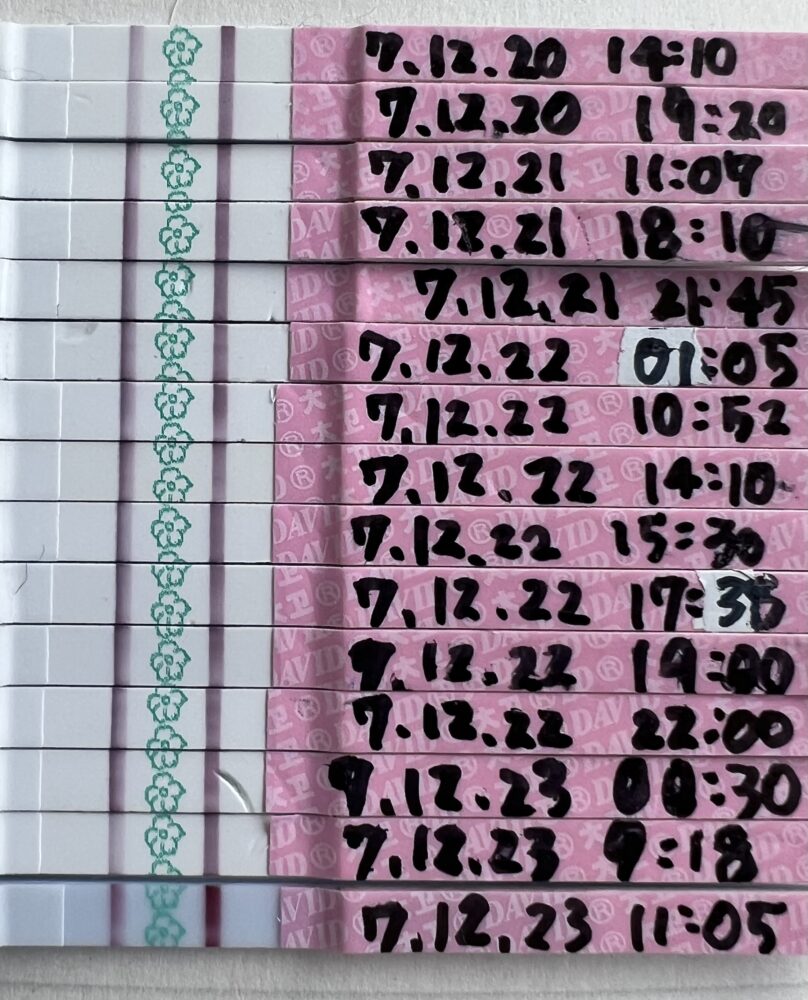 7.12.20 14:10
7.12.20 19:20
7.12.21 11:07
7.12.21 18:10
7.12.21 21:45
7.12.22 01:05
7.12.22 10:52
7.12.22 14:10
7.12.22 15:30
7.12.22 17:35
7.12.22 19:00
7.12.22 22:00
7.12.23 00:30
7.12.23 9:18
7.12.23 11:05